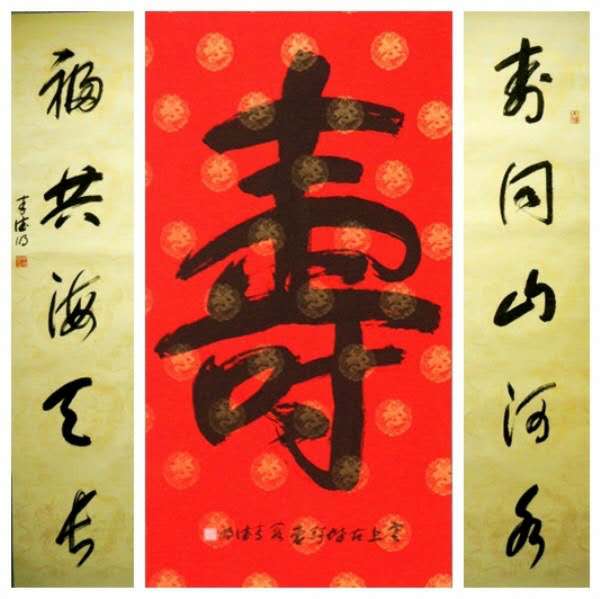 寿同山河永
壽
福共海天长